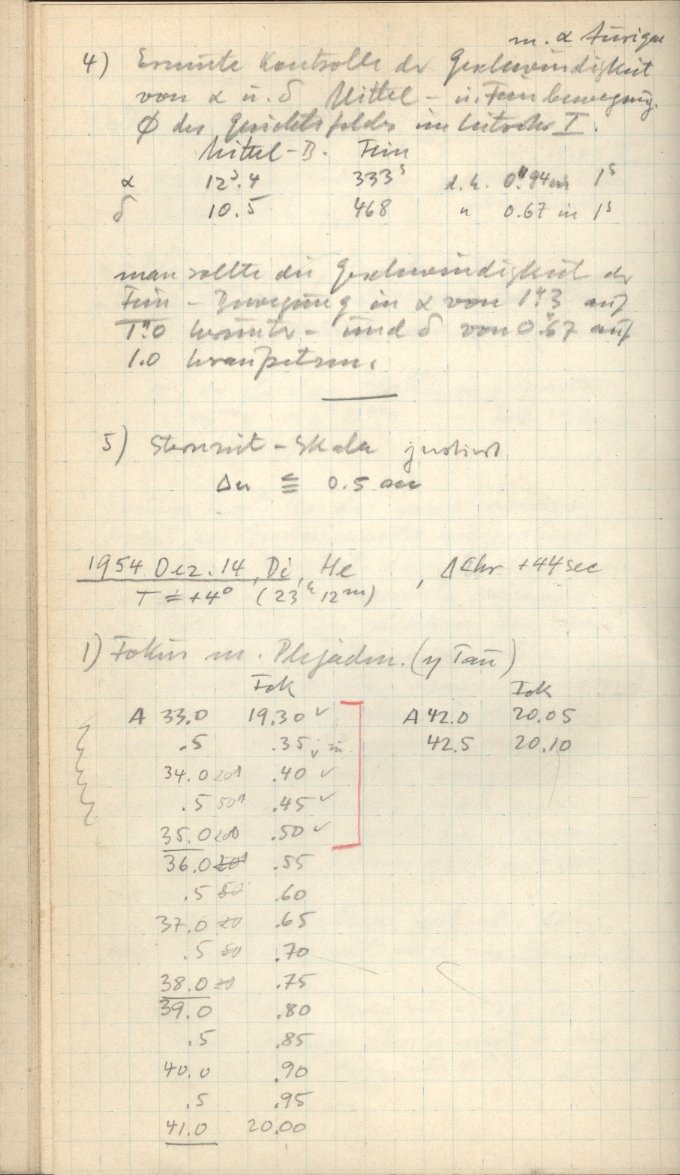 m. α Aurigae
4) Erneute Kontrolle der Geschwindigkeit
von α u. δ Mittel- u. Feinbewegung.
Ø des Gesichtsfeldes im Leitrohr I.
Mittel-B. Fein
α 12ˢ.4 333ˢ d.h. 0".94 in 1ˢ
δ 10.5 468 " 0.67 in 1ˢ
man sollte die Geschwindigkeit der
Fein-Bewegung in α von 1".3 auf
1".0 herunter- und δ von 0".67 auf
1.0 heraufsetzen.
5) Sternzeit-Skala justiert
Δu ≦ 0.5 sec
1954 Dez. 14, Di, He, Δ Chr +44 sec
T = +4° (23ʰ 12ᵐ)
1) Fokus m. Plejaden. (η Tau)
Fok Fok
A 33.0 19.30 ✓ A 42.0 20.05
.5 .35 42.5 20.10
34.0 20ˢ .40 ✓
.5 50ˢ .45 ✓
35.0 20ˢ .50 ✓
36.0 20ˢ .55
.5 50 .60
37.0 20 .65
.5 50 .70
38.0 20 .75
39.0 .80
.5 .85
40.0 .90
.5 .95
41.0 20.00